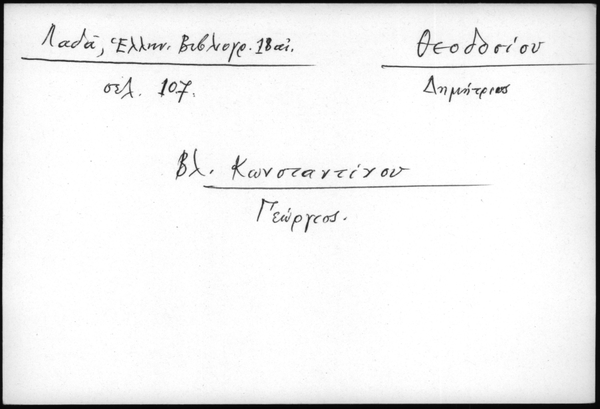 Λαδᾶ, Ἑλλην. Βιβλιογρ. 18 αἰ.
σελ. 107.
Θεοδοσίου
Δημήτριος
Βλ. Κωνσταντίνου
Γεώργιος.